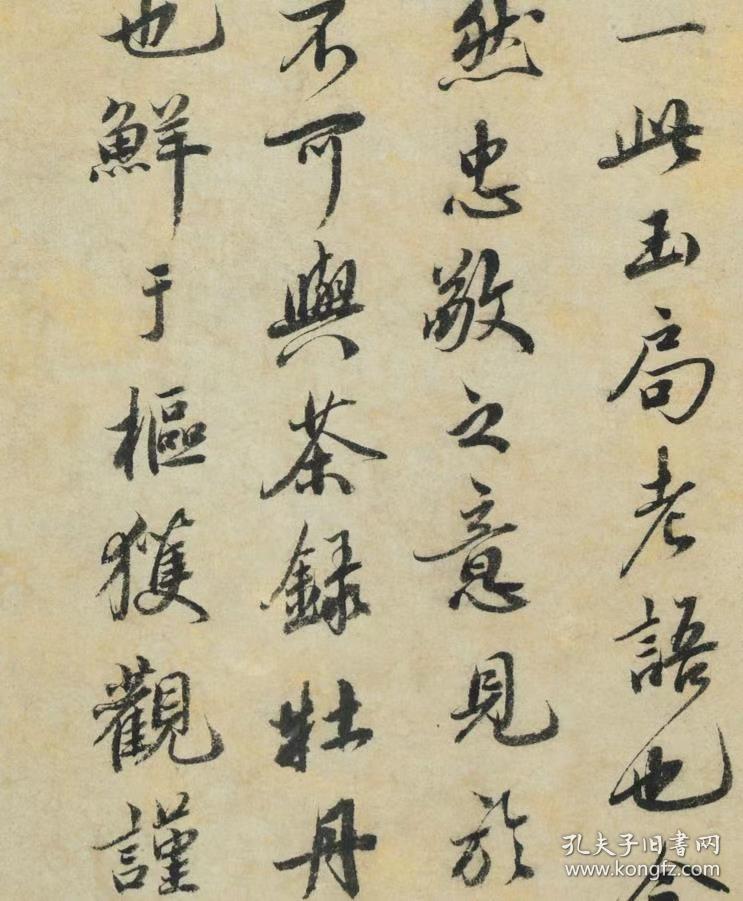 一此玉局老語也今
然忠敬之意見於
不可與茶録牡丹
也鮮于樞獲觀謹
孔夫子旧书网
www.kongfz.com